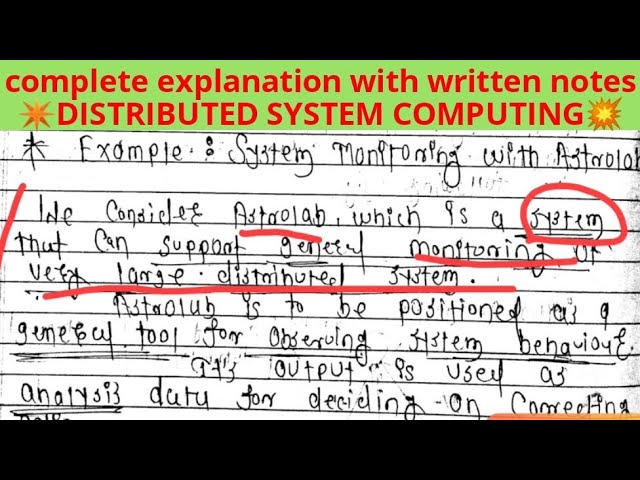 complete explanation with written notes
💥DISTRIBUTED SYSTEM COMPUTING💥
* Example : System Monitoring with Astrolab
We Consider Astrolab, which is a system
that can support general monitoring of
very large distributed system.
Astrolab is to be positioned as a
general tool for observing system behaviour.
Its output is used as
analysis data for deciding on Correcting